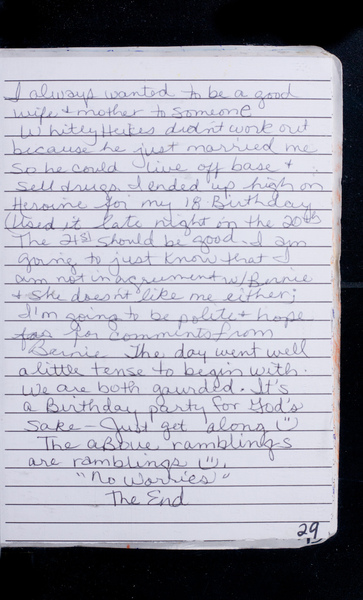 I always wanted to be a good
wife & mother to someone
Whitey Heikes didn't work out
because he just married me
so he could live off base &
sell drugs. I ended up high on
Heroine for my 18 Birthday
(Used it late night on the 20th
The 21st should be good. I am
going to just know that I
am not in agreement w/Bernie
& she doesn't like me either;
I'm going to be polite & hope
for comments from
Bernie The day went well
a little tense to begin with.
We are both gaurded. It's
a Birthday party for God's
sake - Just get along
The above ramblings
are ramblings
"No Worries"
The End
29